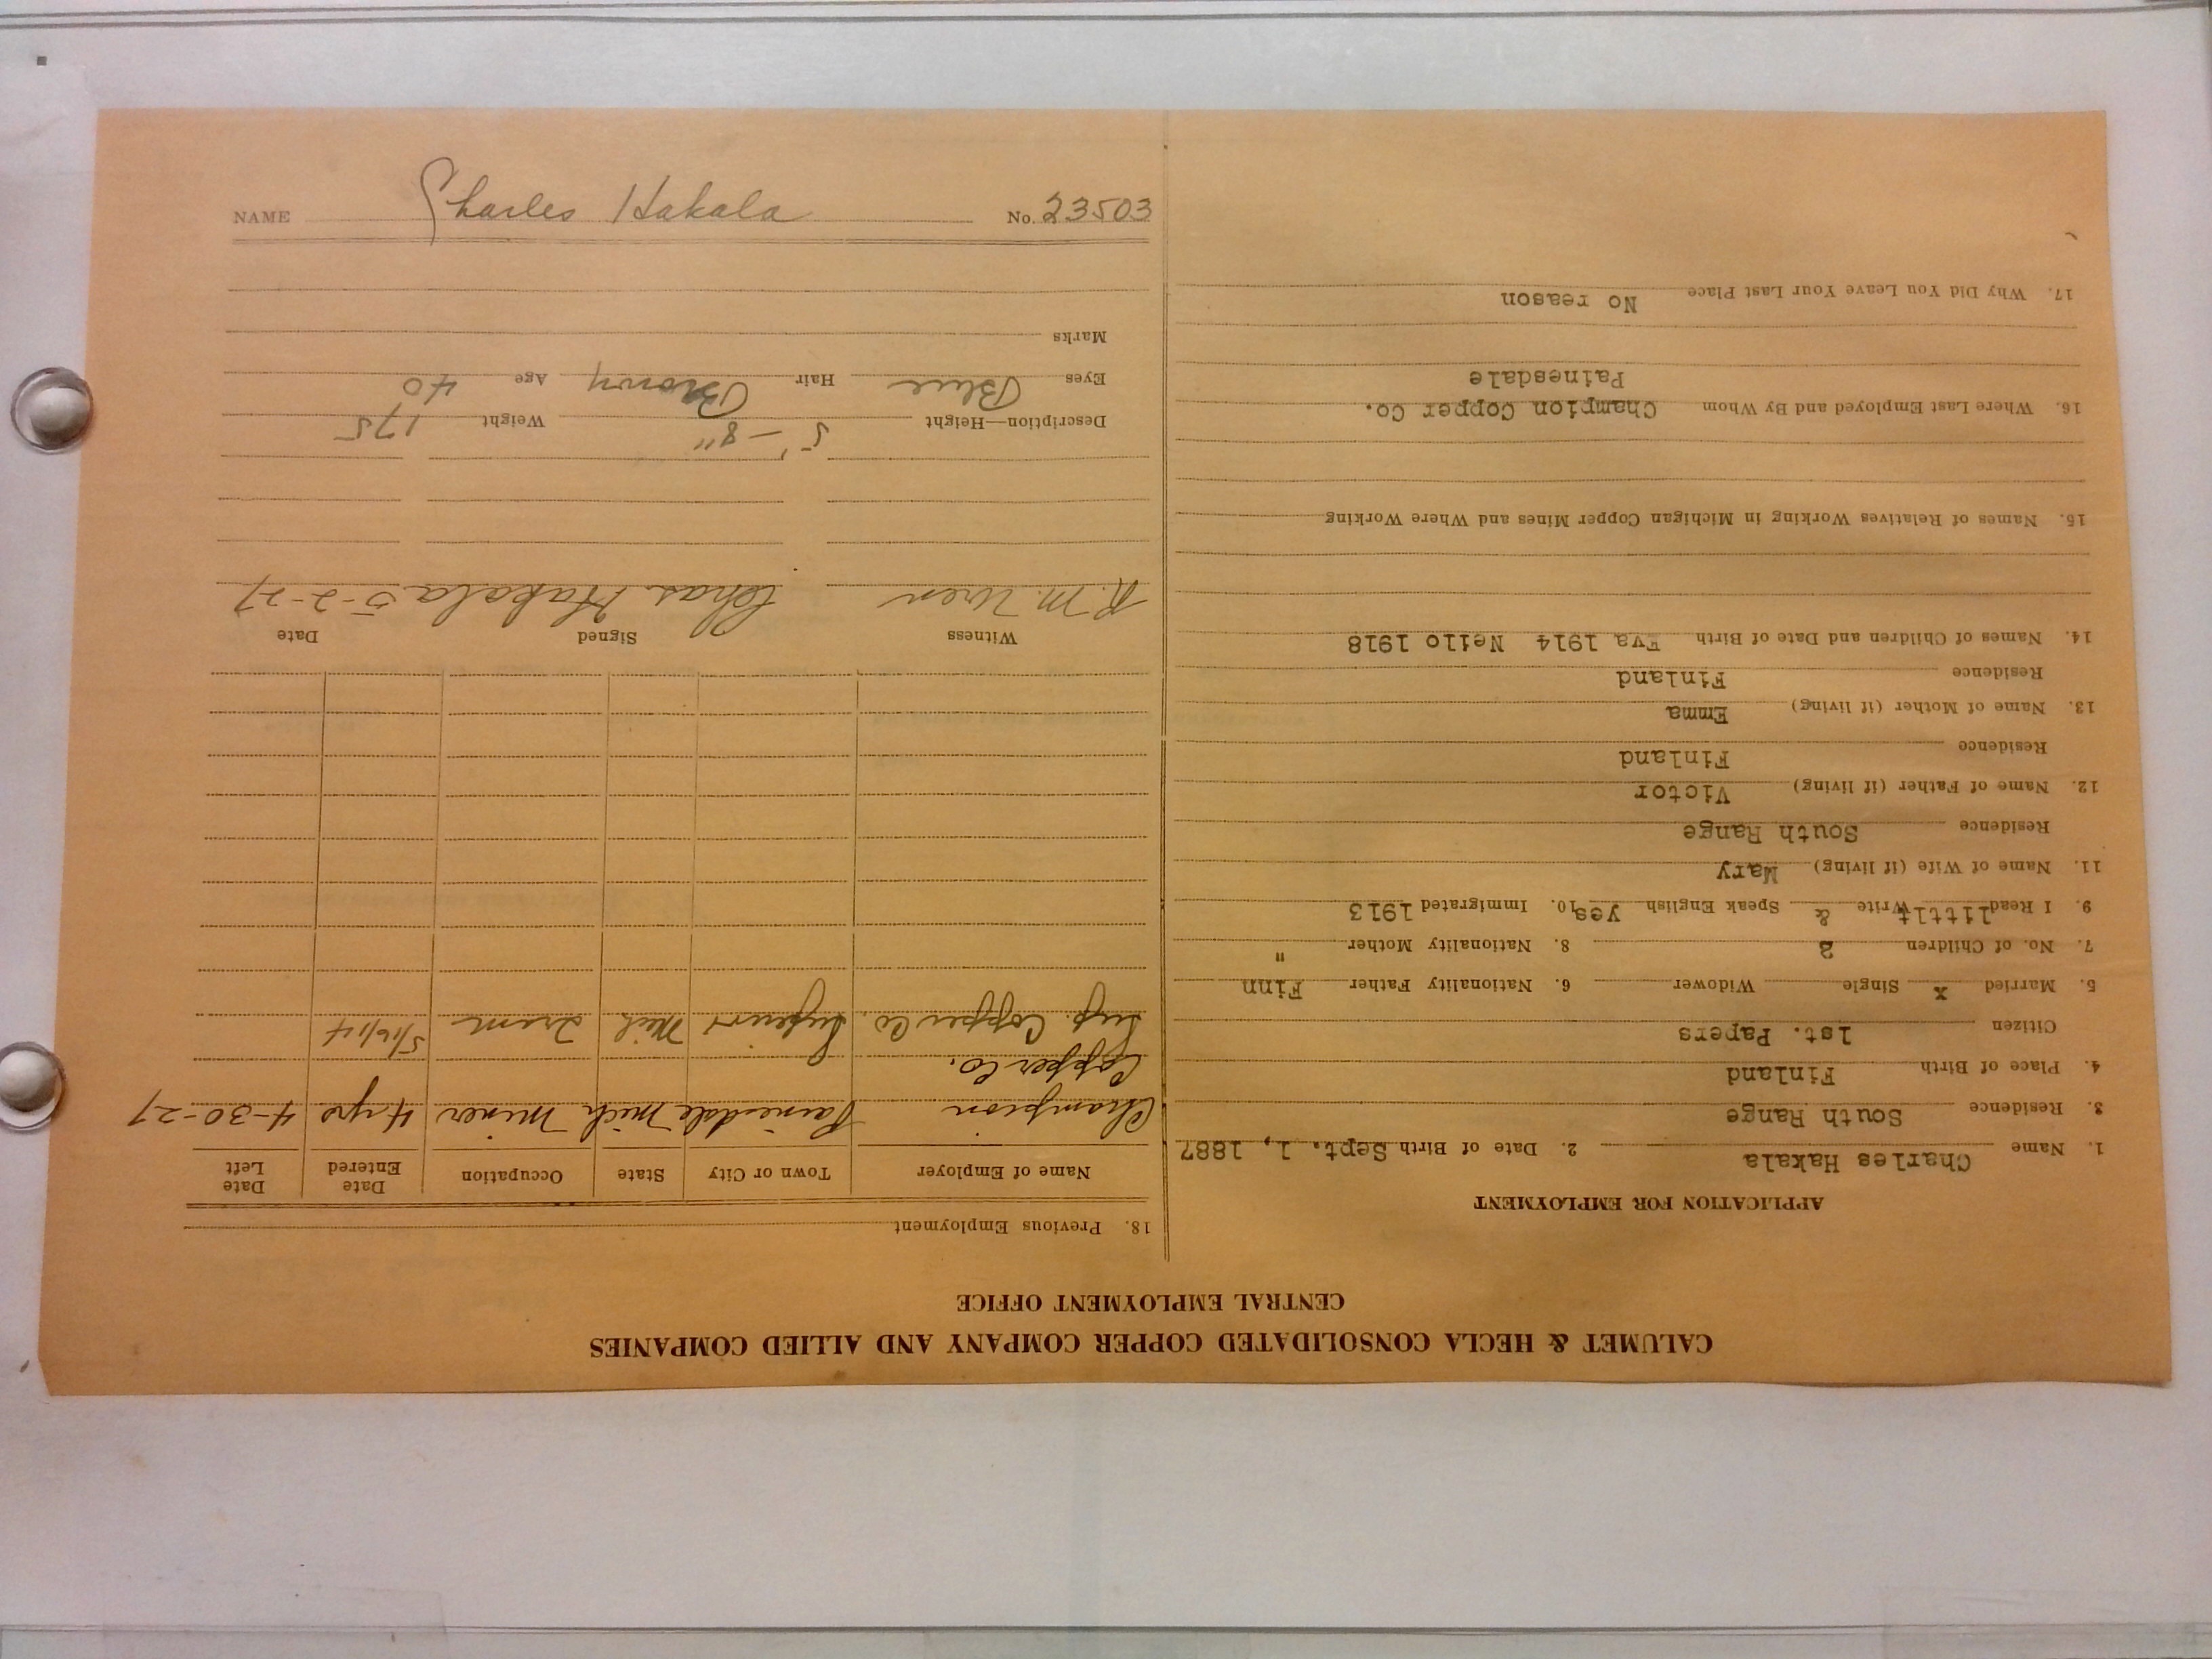 CALUMET & HECLA CONSOLIDATED COPPER COMPANY AND ALLIED COMPANIES
CENTRAL EMPLOYMENT OFFICE
APPLICATION FOR EMPLOYMENT
1. Name Charles Hakala 2. Date of Birth Sept. 1, 1887
3. Residence South Range
4. Place of Birth Finland
Citizen 1st. Papers
5. Married x Single Widower 6. Nationality Father Finn
7. No. of Children 2 8. Nationality Mother "
9. I Read littlt Write & Speak English yes 10. Immigrated 1913
11. Name of Wife (if living) Mary
Residence South Range
12. Name of Father (if living) Victor
Residence Finland
13. Name of Mother (if living) Emma
Residence Finland
14. Names of Children and Date of Birth Eva 1914 Neilo 1918
15. Names of Relatives Working in Michigan Copper Mines and Where Working
16. Where Last Employed and By Whom Champion Copper Co.
Painesdale
17. Why Did You Leave Your Last Place No reason
18. Previous Employment
Name of Employer Town or City State Occupation Date Entered Date Left
Champion Painesdale Mich Miner 4 yrs 4-30-27
Copper Co.
Sup. Copper Co. Superior Mich Tram 5/16/14
Witness Signed Date
R. M. Uren Chas. Hakala 5-2-27
Description—Height 5'-8" Weight 175
Eyes Blue Hair Brown Age 40
Marks
NAME Charles Hakala No. 23503